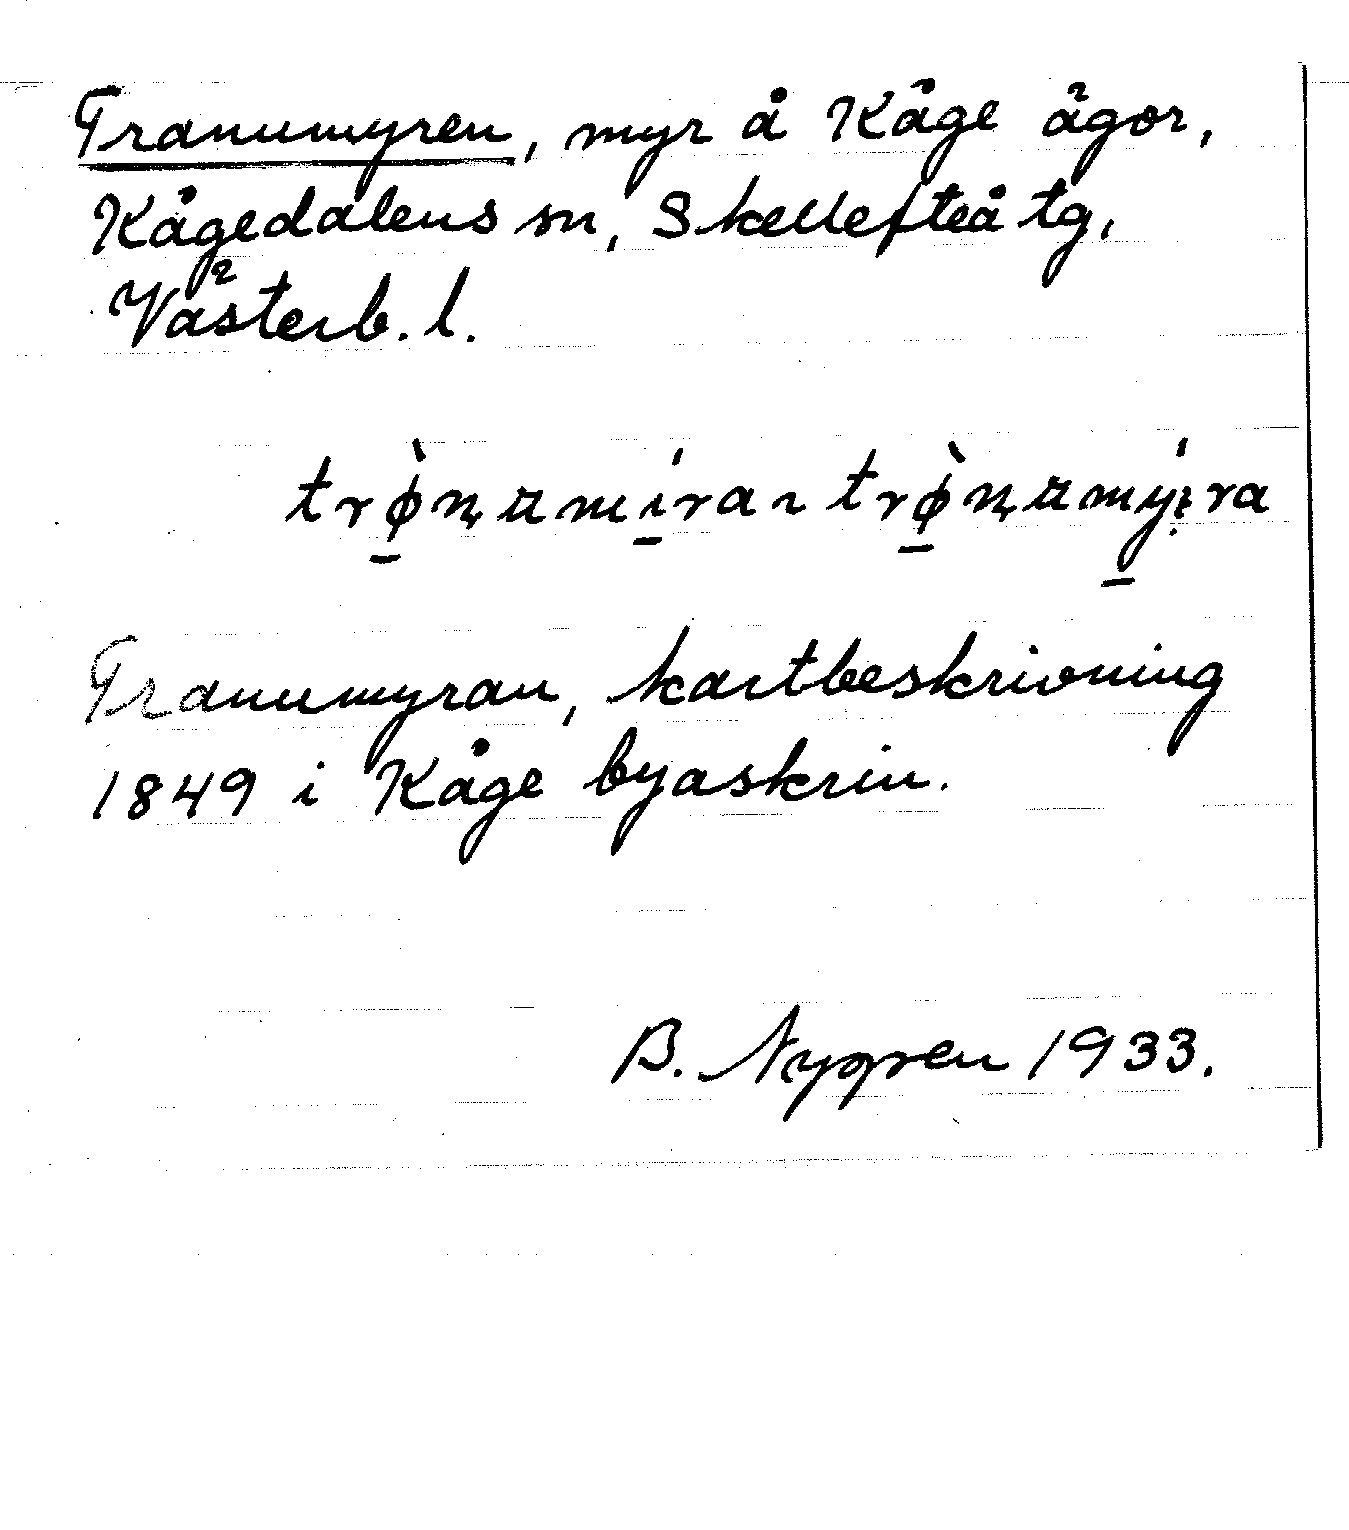 Tranumyren, myr å Kåge ägor,
Kågedalens sn, Skellefteå tg,
Västerb. l.
trø̀numíra ~ trø̀numýira
Tranumyran, kartbeskrivning
1849 i Kåge byaskrin.
B. Nygren 1933.